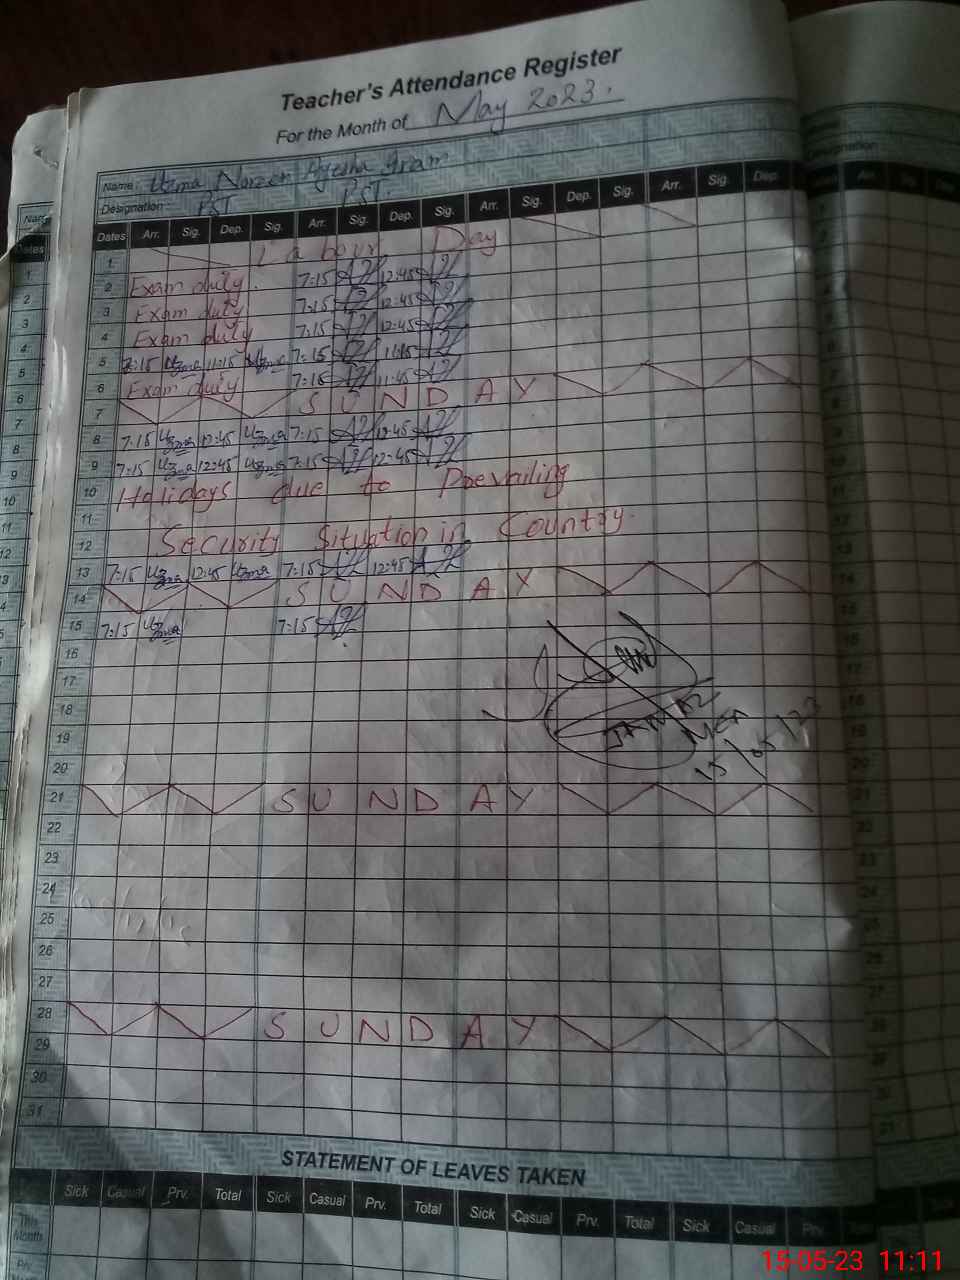 Teacher's Attendance Register
For the Month of May 2023.
Name : Uzma Noreen Ayesha Ikram
Designation : PST PST.
Dates Arr. Sig. Dep. Sig. Arr. Sig. Dep. Sig. Arr. Sig. Dep. Sig. Arr. Sig. Dep.
1 Labour Day
2 Exam duty. 7:15 12:45
3 Exam duty 7:15 12:45
4 Exam duty 7:15 12:45
5 7:15 Uzma 11:15 Uzma 7:15 11:15
6 Exam duty 7:15 11:45
7 SUNDAY
8 7:15 Uzma 12:45 Uzma 7:15 12:45
9 7:15 Uzma 12:45 Uzma 7:15 12:45
10 Holidays due to Prevailing
11
12 Security Situation in Country.
13 7:15 Uzma 12:45 Uzma 7:15 12:45
14 SUNDAY
15 7:15 Uzma 7:15
16
17
18
19
20
MEA
15/05/23
21 SUNDAY
22
23
24
25
26
27
28 SUNDAY
29
30
31
STATEMENT OF LEAVES TAKEN
Sick Casual Prv. Total Sick Casual Prv. Total Sick Casual Prv. Total Sick Casual Prv.
This Month
Prv.
15-05-23 11:11